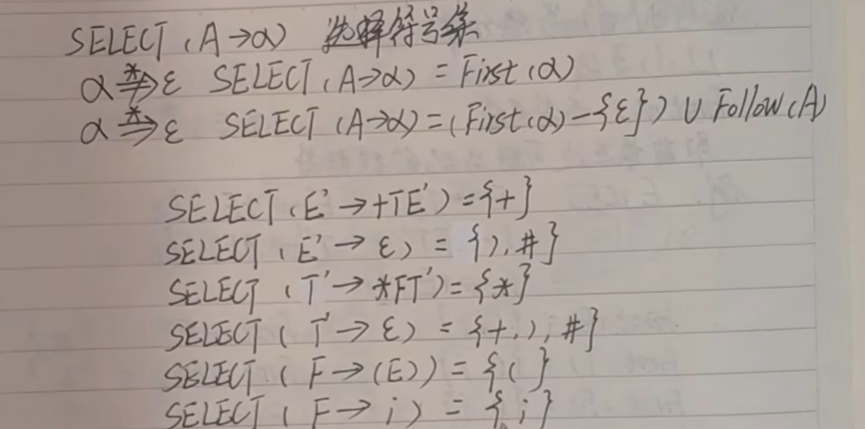 SELECT(A→α) 选择符号集
α *⇏ ε SELECT(A→α) = First(α)
α *⇒ ε SELECT(A→α) = (First(α) - {ε}) ∪ Follow(A)
SELECT(E'→+TE') = {+}
SELECT(E'→ε) = {), #}
SELECT(T'→*FT') = {*}
SELECT(T'→ε) = {+, ), #}
SELECT(F→(E)) = {(}
SELECT(F→i) = {i}